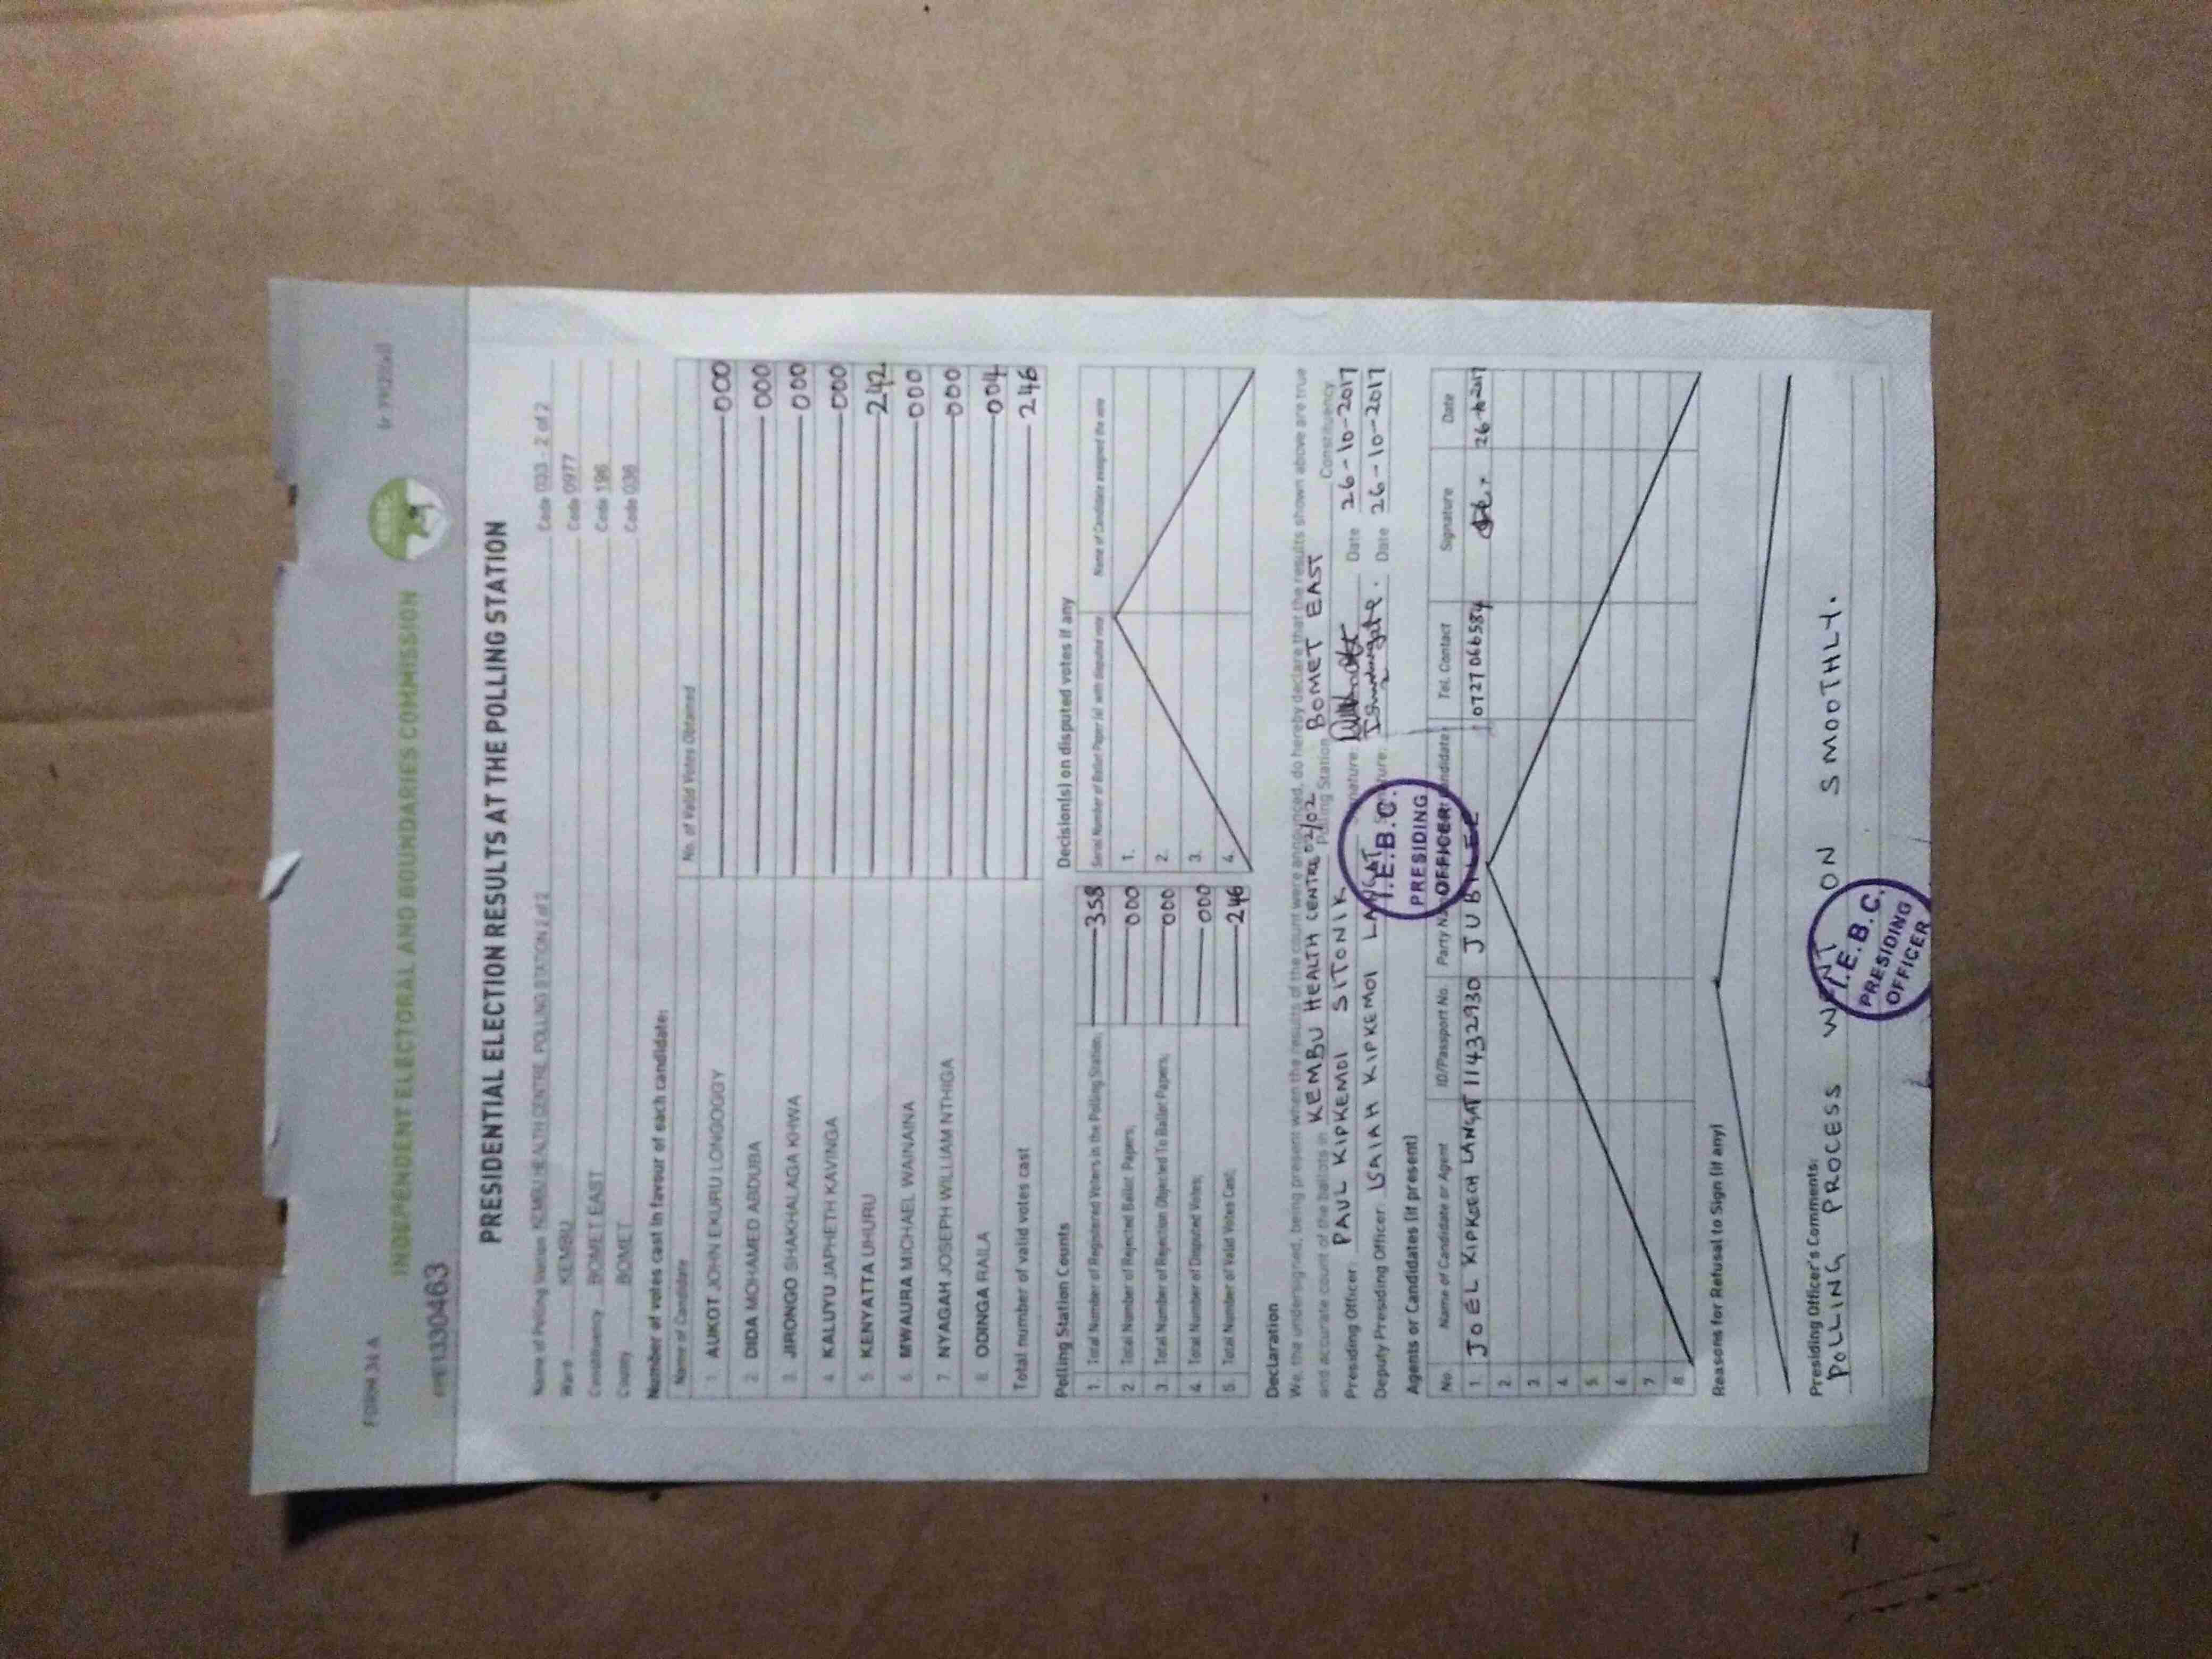 FORM 34 A
INDEPENDENT ELECTORAL AND BOUNDARIES COMMISSION
IEBC
PRESIDENTIAL ELECTION RESULTS AT THE POLLING STATION
Name of Polling Station KEMBU HEALTH CENTRE POLLING STATION 2 of 2 Code 033 - 2 of 2
Ward KEMBU Code 0977
Constituency BOMET EAST Code 196
County BOMET Code 036
Number of votes cast in favour of each candidate:
Name of Candidate No. of Valid Votes Obtained
1. AUKOT JOHN EKURU LONGOGGY 000
2. DIDA MOHAMED ABDUBA 000
3. JIRONGO SHAKHALAGA KHWA 000
4. KALUYU JAPHETH KAVINGA 000
5. KENYATTA UHURU 242
6. MWAURA MICHAEL WAINAINA 000
7. NYAGAH JOSEPH WILLIAM NTHIGA 000
8. ODINGA RAILA 004
Total number of valid votes cast 246
Polling Station Counts
1. Total Number of Registered Voters in the Polling Station; 358
2. Total Number of Rejected Ballot Papers; 000
3. Total Number of Rejection Objected To Ballot Papers; 000
4. Total Number of Disputed Votes; 000
5. Total Number of Valid Votes Cast; 246
Decision(s) on disputed votes if any
Serial Number of Ballot Paper (s) with disputed vote Name of Candidate assigned the vote
1.
2.
3.
4.
Declaration
We, the undersigned, being present when the results of the count were announced, do hereby declare that the results shown above are true
and accurate count of the ballots in KEMBU HEALTH CENTRE 02/02 Polling Station BOMET EAST Constituency
Presiding Officer: PAUL KIPKEMOI SITONIK Signature: Date 26-10-2017
Deputy Presiding Officer ISAIAH KIPKEMOI LANGAT Date 26-10-2017
I.E.B.C. PRESIDING OFFICER
Agents or Candidates (if present)
No. Name of Candidate or Agent ID/Passport No. Tel. Contact Signature Date
1. JOEL KIPKOECH LANGAT 11432930 JUBILEE 0727066584 26-10-2017
2.
3.
4.
5.
6.
7.
8.
Reasons for Refusal to Sign (if any)
Presiding Officer's Comments:
POLLING PROCESS WENT ON SMOOTHLY.
I.E.B.C. PRESIDING OFFICER